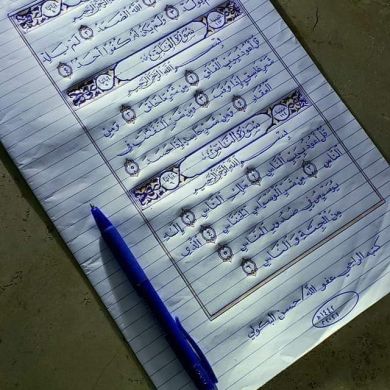 الله الصمد لم يلد
ولم يكن له كفوا أحد
سورة الفلق
بسم الله الرحمن الرحيم
قل أعوذ برب الفلق من شر ما خلق ومن
شر غاسق إذا وقب ومن شر النفاثات في
العقد ومن شر حاسد إذا حسد
سورة الناس
بسم الله الرحمن الرحيم
قل أعوذ برب الناس ملك الناس إله
الناس من شر الوسواس الخناس الذي
يوسوس في صدور الناس
من الجنة و الناس
كتبه الراجي عفو الله / حسن
١٤٤٤هـ